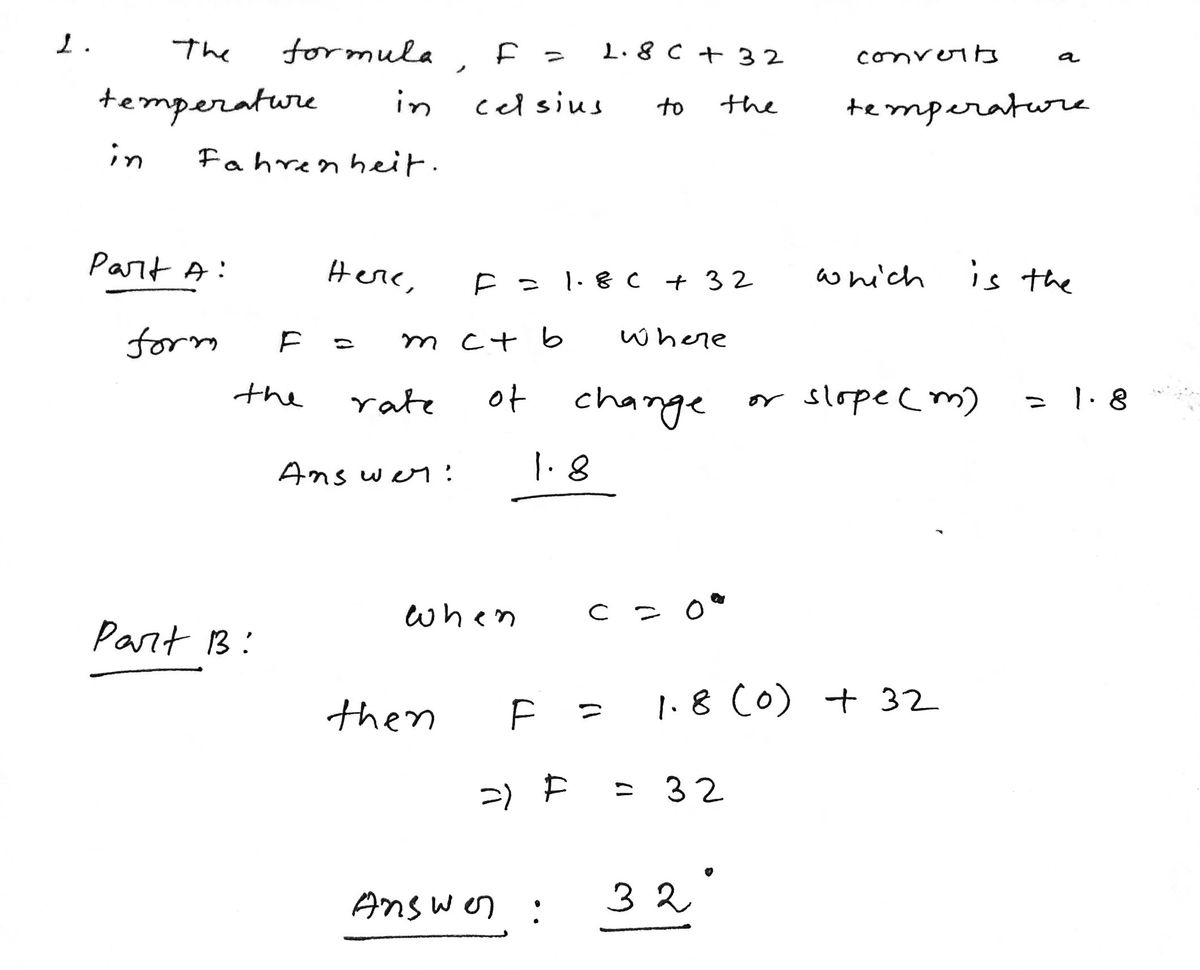 1. The formula, F = 1.8 C + 32 converts a
temperature in celsius to the temperature
in Fahrenheit.
Part A: Here, F = 1.8 C + 32 which is the
form F = m C + b where
the rate of change or slope (m) = 1.8
Answer: 1.8
when C = 0°
Part B:
then F = 1.8 (0) + 32
=) F = 32
Answer : 32°